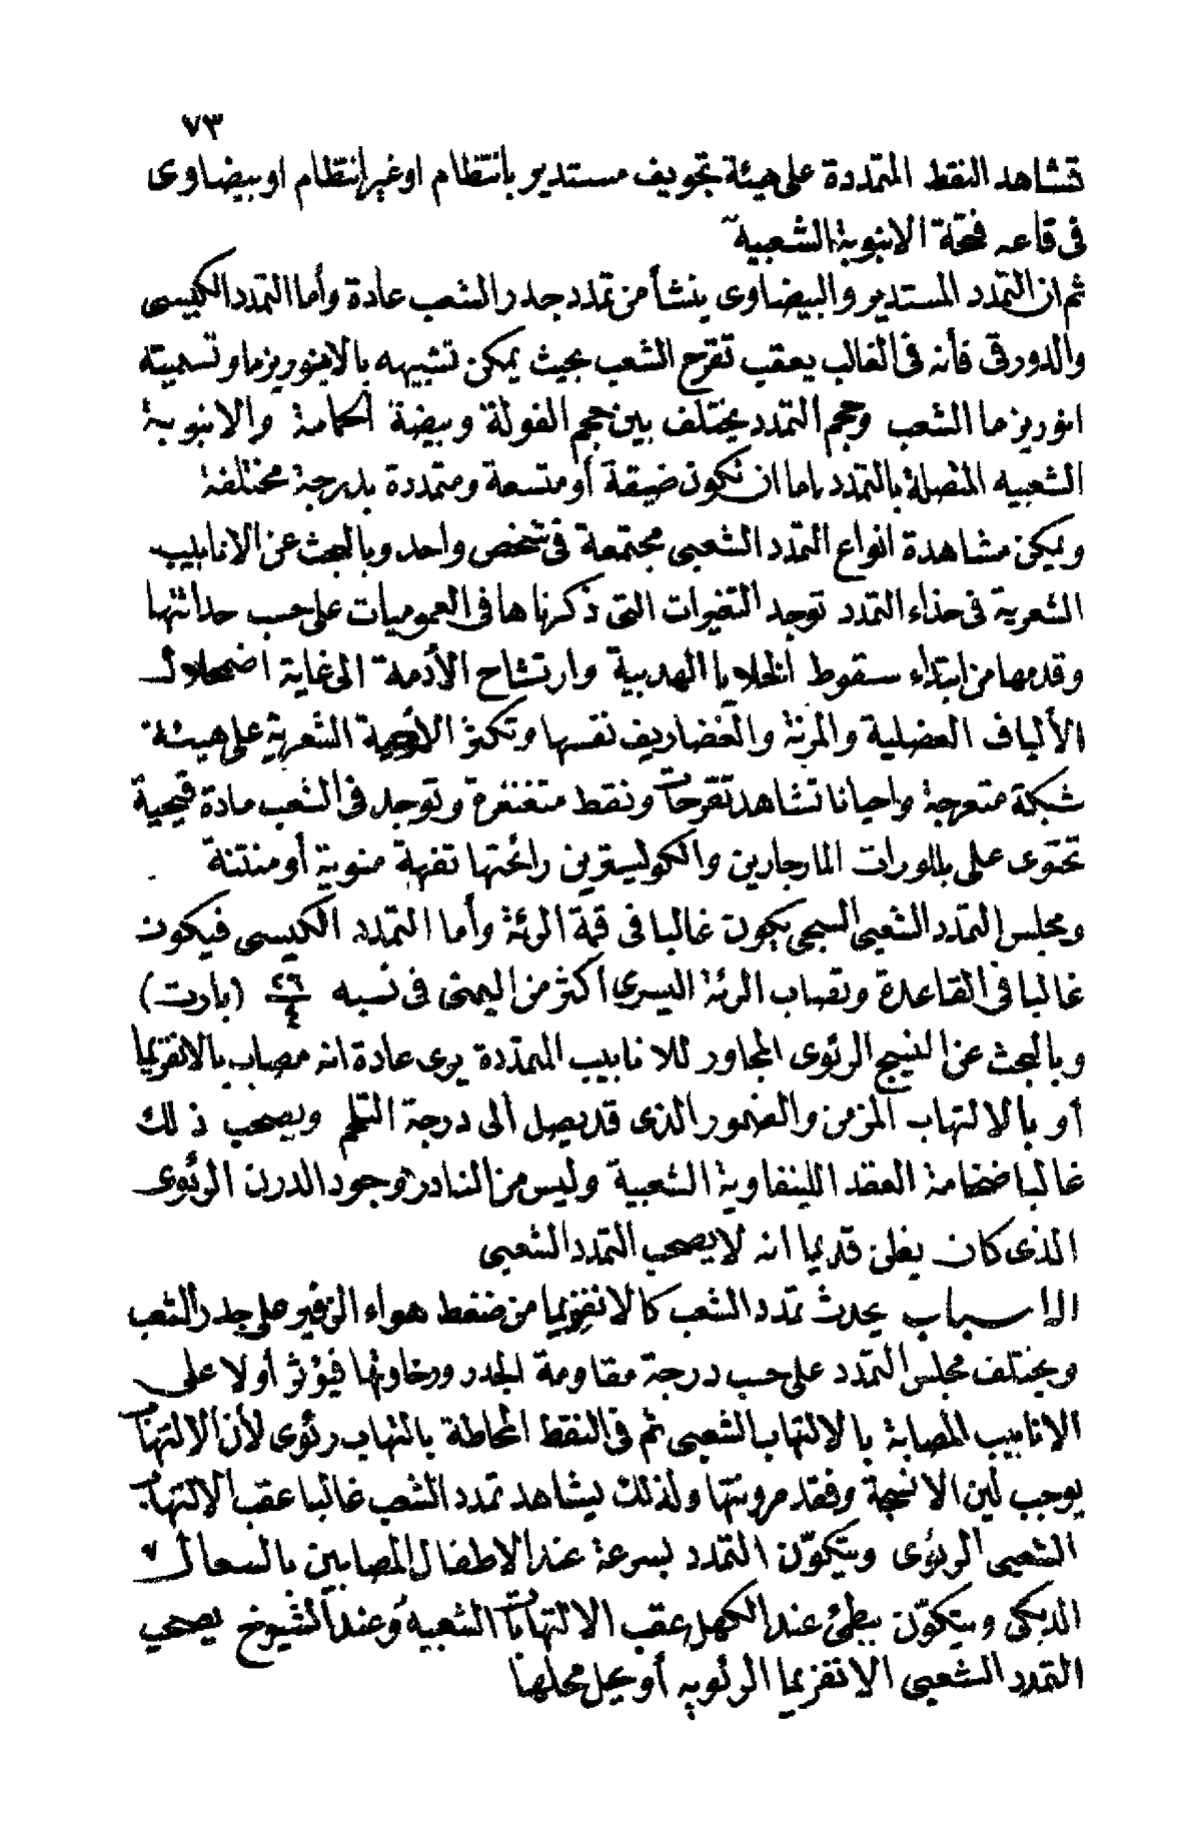 ٧٣
تشاهد النقط المتمددة على هيئة تجويف مستدير بانتظام او غير إنتظام او بيضاوى
فى قاعه فتحة الانبوبة الشعبيه
ثم ان التمدد المستدير والبيضاوى ينشأ من تمدد جدر الشعب عادة وأما التمدد الكيسى
والدورقى فأنه فى الغالب يعقب تقرح الشعب بحيث يمكن تشبيهه بالانوريزما وتسميته
انوريزما الشعب وحجم التمدد يختلف بين حجم الفولة وبيضة الحمامة والانبوبة
الشعبيه المتصلة بالتمدد اما ان تكون ضيقة أو متسعة ومتمددة بدرجة مختلفة
ويمكن مشاهدة انواع التمدد الشعبى مجتمعة فى شخص واحد وبالبحث عن الانابيب
الشعرية فى حذاء التمدد توجد التغيرات التى ذكرناها فى العموميات على حسب حداثتها
وقدمها من ابتداء سقوط الخلايا الهدبية وارتشاح الأدمة الى غاية اضمحلال
الألياف العضلية والمرنة والغضاريف نفسها وتكثر الأوعية الشعرية على هيئة
شبكة متعرجة واحيانا تشاهد تقرحات ونقط متغنغرة وتوجد فى الشعب مادة قيحية
تحتوى على بللورات المارجارين والكوليسترين رائحتها تفهة منوية أو منتنة
ومجلس التمدد الشعبى السبحى يكون غالبا فى قمة الرئة وأما التمدد الكيسى فيكون
غالبا فى القاعدة وتصاب الرئة اليسرى اكثر من اليمنى فى نسبه ٢٦/٤ (بارت)
وبالبحث عن النسيج الرئوى المجاور للانابيب المتمددة يرى عادة انه مصاب بالانفزيما
أو بالالتهاب المزمن والضمور الذى قد يصل الى درجة التلم ويصحب ذلك
غالبا ضخامة العقد اللينفاوية الشعبية وليس من النادر وجود الدرن الرئوى
الذى كان يظن قديما انه لا يصحب التمدد الشعبى
الاسباب يحدث تمدد الشعب كالانفزيما من ضغط هواء الزفير على جدر الشعب
ويختلف مجلس التمدد على حسب درجة مقاومة الجدر ورخاوتها فيؤثر أولا على
الانابيب المصابة بالالتهاب الشعبى ثم فى النقط المحاطة بالتهاب رئوى لأن الالتهاب
يوجب لين الانسجة وفقد مرونتها ولذلك يشاهد تمدد الشعب غالبا عقب الالتهاب
الشعبى الرئوى ويتكوّن التمدد بسرعة عند الاطفال المصابين بالسعال
الديكى ويتكوّن ببطئ عند الكهل عقب الالتهابات الشعبيه وعند الشيوخ يصحب
التمدد الشعبى الانفزيما الرئويه أو يحل محلها